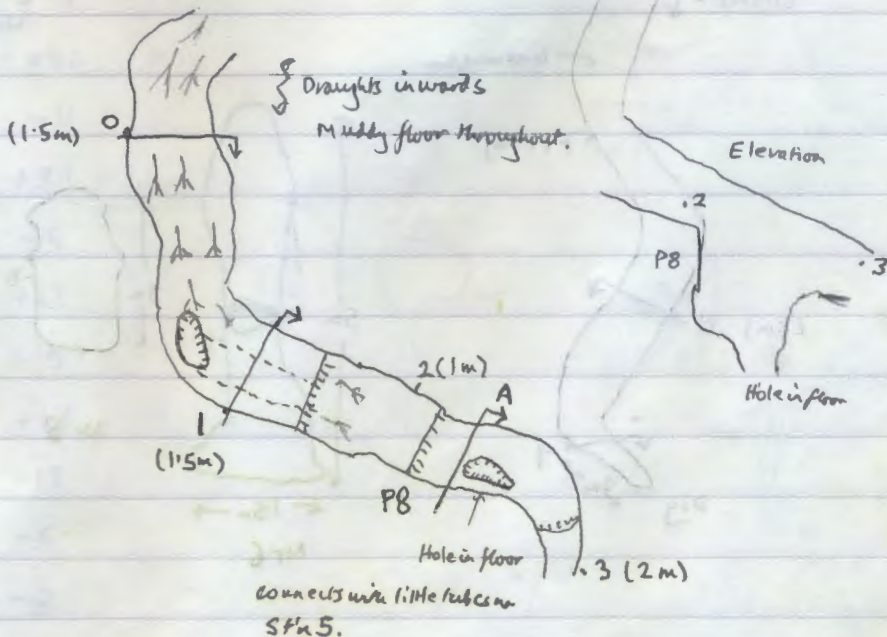 Draughts inwards
0
(1.5m)
Muddy floor throughout.
Elevation
.2
P8
.3
Hole in floor
2 (1m)
A
1
(1.5m)
P8
Hole in floor
.3 (2m)
connects with little tube on
St'n 5.